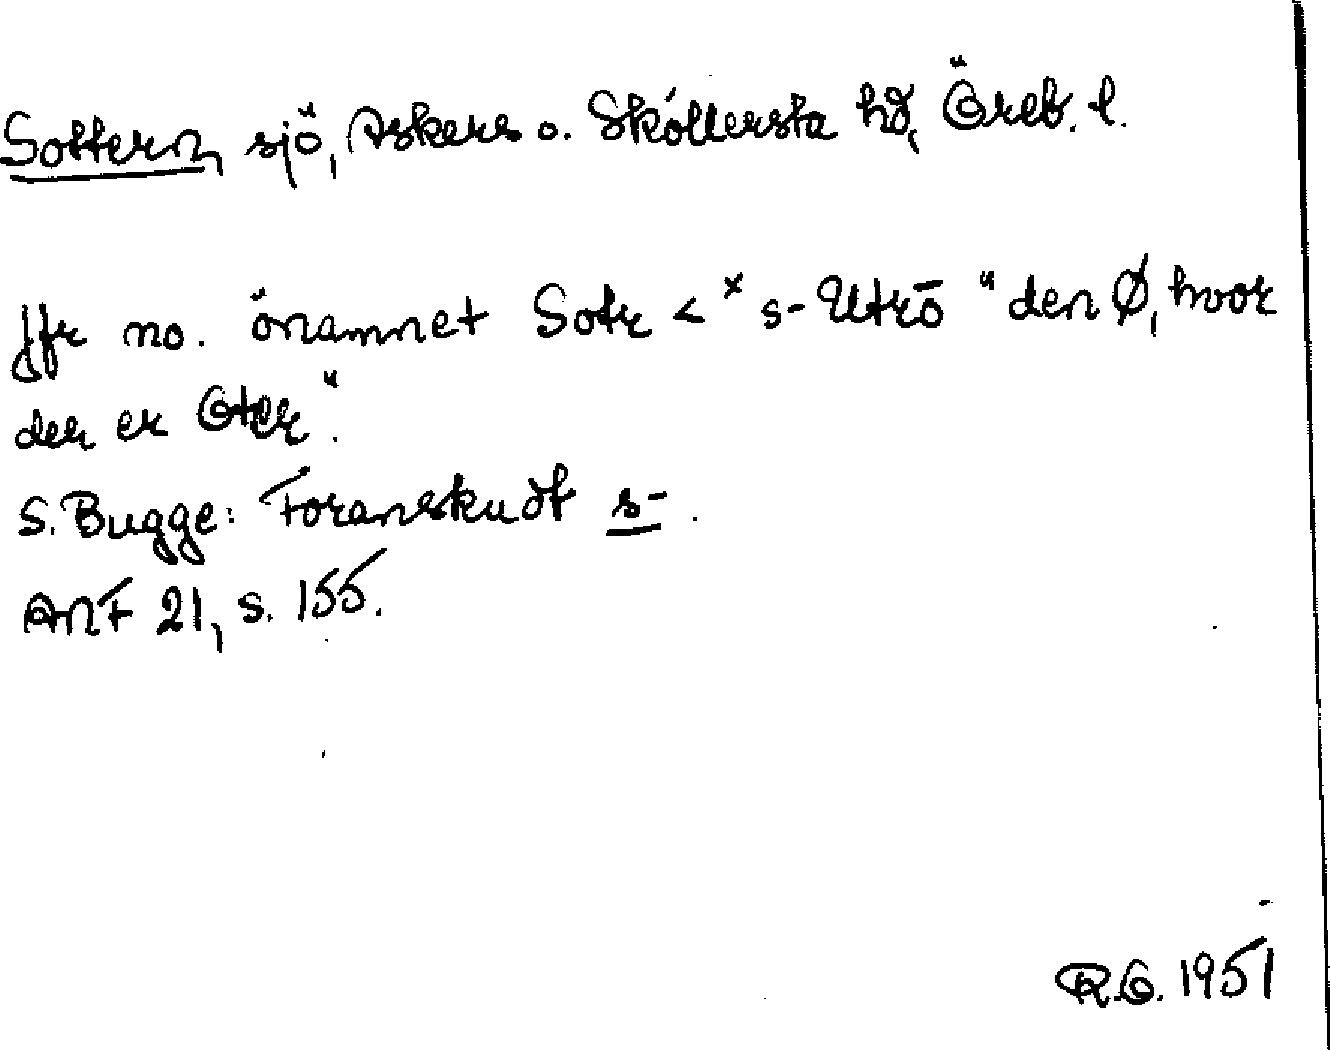 Sottern, sjö, Askers o. Sköllersta hd, Öreb. l.
Jfr no. önamnet Sotr < ˣ s-Utrō "den Ø, hvor
der er Oter".
S. Bugge: Foranskudt s-.
ANF 21, s. 155.
R.O. 1951